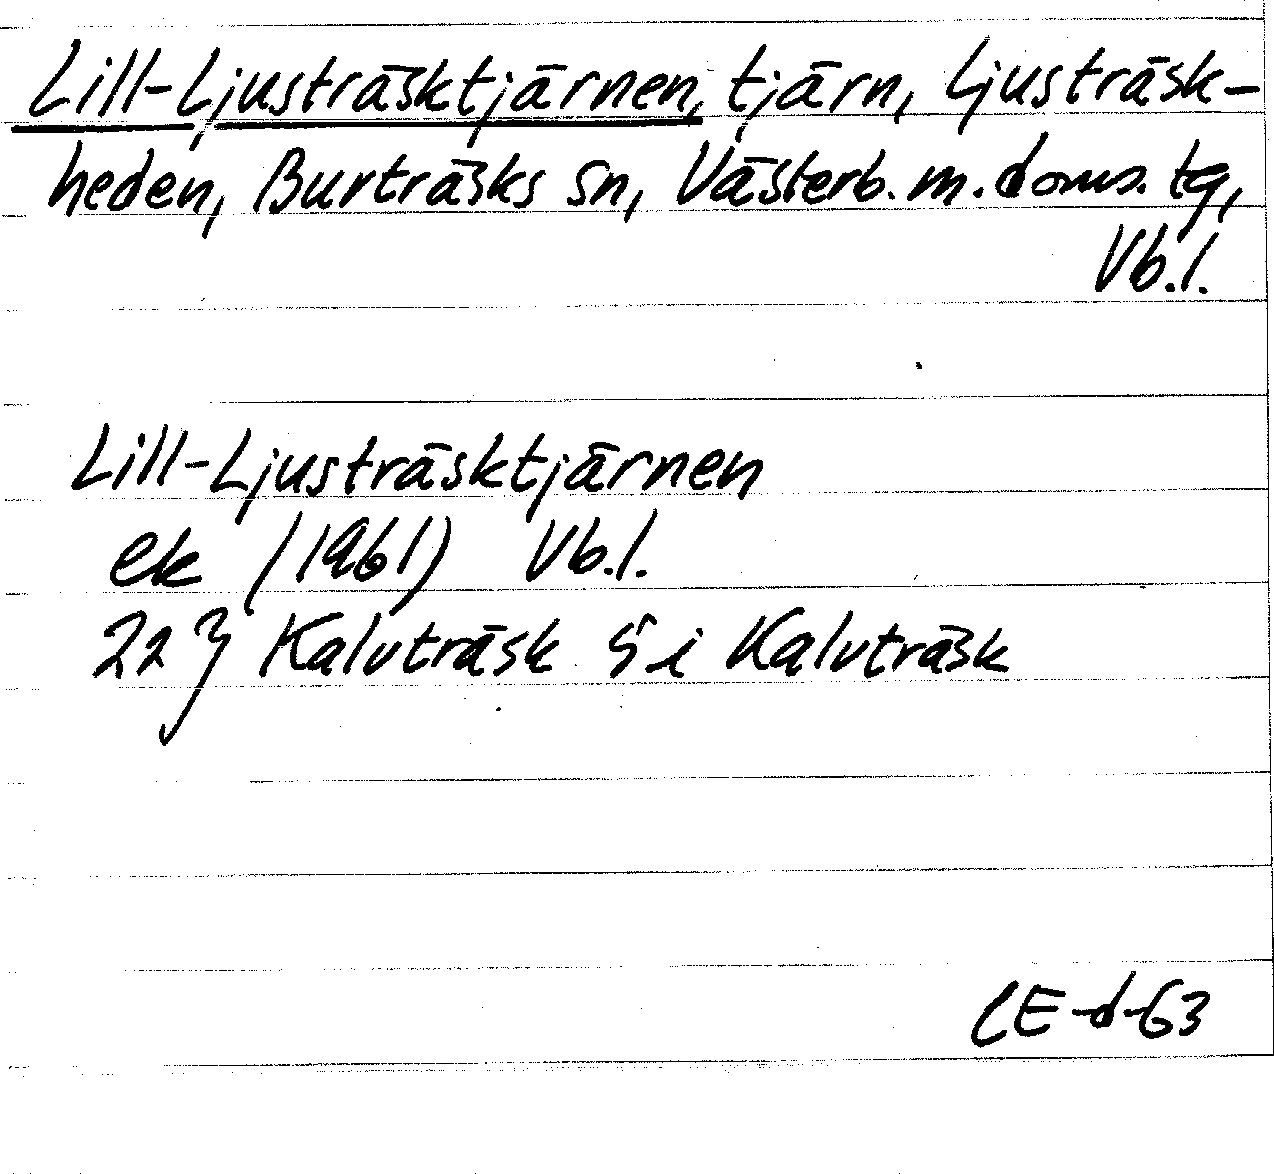 Lill-Ljusträsktjärnen, tjärn, Ljusträsk-
heden, Burträsks sn, Västerb. m. doms. tg,
Vb.l.
Lill-Ljusträsktjärnen
ek (1961) Vb.l.
22 J Kalvträsk 5 i Kalvträsk
CE-d-63